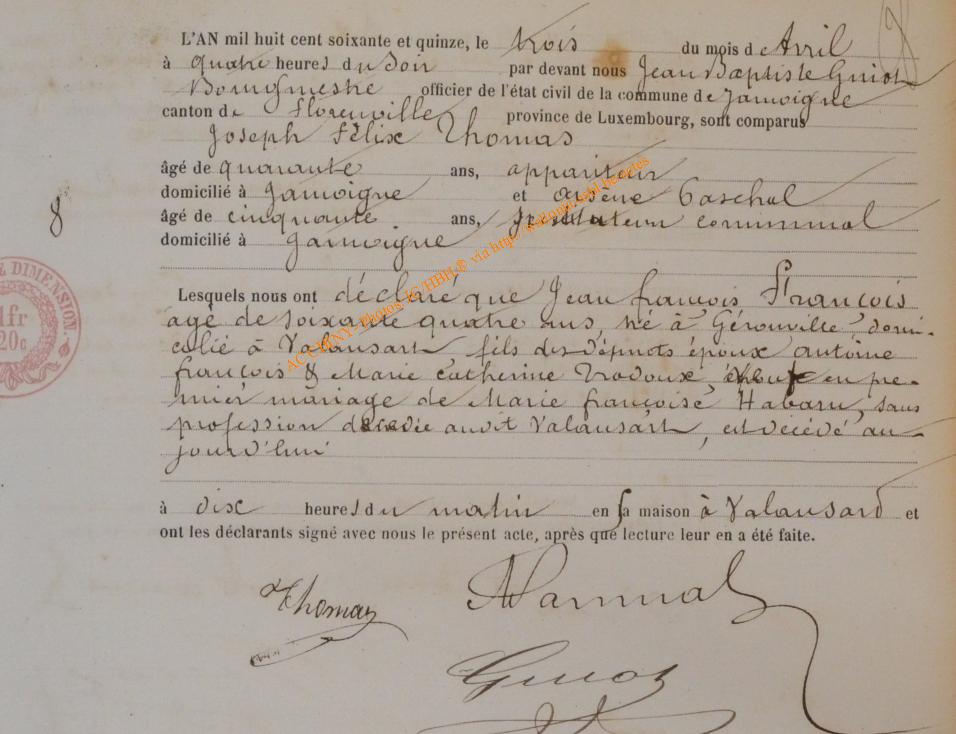 L'AN mil huit cent soixante et quinze, le trois du mois d'Avril
à quatre heures du soir par devant nous Jean Baptiste Guiot
Bourgmestre officier de l'état civil de la commune de Jamoigne
canton de Florenville province de Luxembourg, sont comparus
Joseph Félix Thomas
âgé de quarante ans, appariteur
domicilié à Jamoigne et Arsène Paschal
âgé de cinquante ans, Instituteur communal
domicilié à Jamoigne
8
DIMENSION.
1fr
20c
Lesquels nous ont déclaré que Jean françois François
agé de soixante quatre ans, né à Gérouville, domi-
cilié à Valansart, fils des défunts époux antoine
françois & Marie Catherine Trodoux, en pre-
mier mariage de Marie françoise Habaru, sans
profession décédée audit Valansart, est décédé au-
jourd'hui
à dix heures du matin en sa maison à Valansard et
ont les déclarants signé avec nous le présent acte, après que lecture leur en a été faite.
Thomas
Guiot